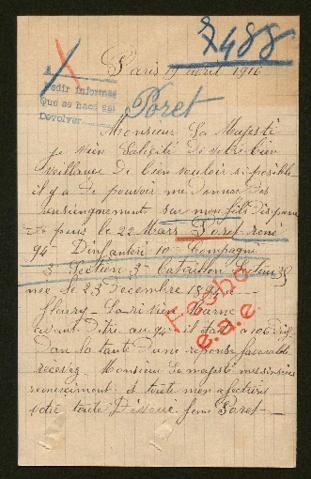 7488
Paris 19 avril 1916
A
Pedir informes
Que se hace así
Devolver
Poret
Monsieur Sa Majesté
je vien Saliqité de votre bien
veillance de bien vouloir si possible
il y a de pouvoir me donner des
renseingnements sur mon fils disparu
de puis le 22 Mars Poret René
94 Dinfanteri 10 Compagni
3 Section 3 Bataillon Secteur
née le 23 Decembre 1894 a
Fleury La Rivière Marne
avant dètre au 94 il était a 106
Dan la tante d'une reponse favorable
recevez Monsieur Le majesté mes sinsères
remerciment et tout mon afections
votre toute Dévoué feme Poret
Fecha
e.a.e